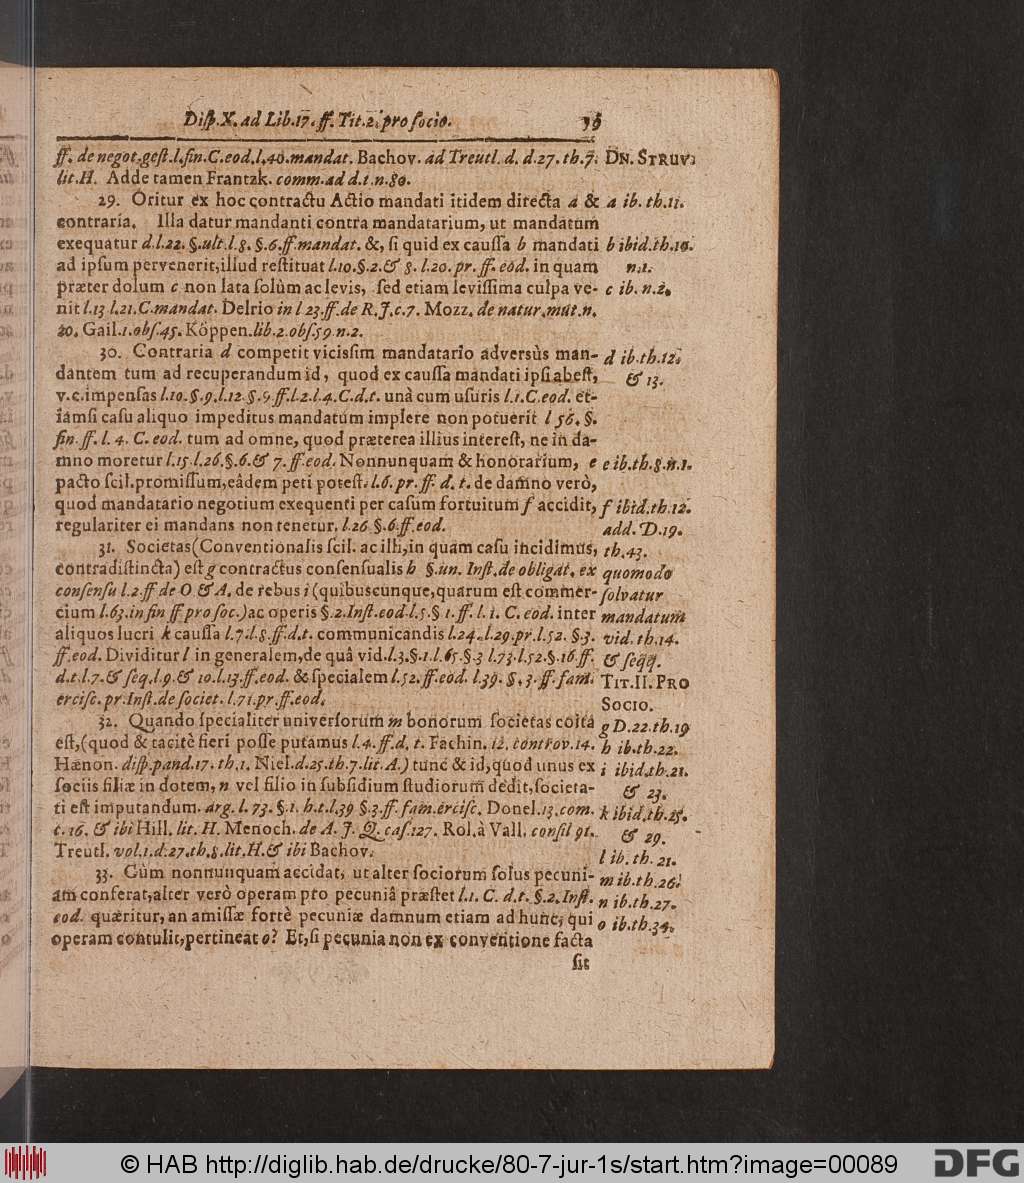 Disp. X. ad Lib. 17. ff. Tit. 2. pro socio.
ff. de negot. gest. l. fin. C. eod. l. 40. mandat. Bachov. ad Treutl. d. d. 27. th. 7. DN. STRUV:
lit. H. Adde tamen Frantzk. comm. ad d. t. n. 80.
29. Oritur ex hoc contractu Actio mandati itidem directa a & a ib. th. 11.
contraria. Illa datur mandanti contra mandatarium, ut mandatum
exequatur d. l. 22. §. ult. l. 8. §. 6. ff. mandat. &, si quid ex caussa b mandati b ibid. th. 10.
ad ipsum pervenerit, illud restituat l. 10. §. 2. & 8. l. 20. pr. ff. eod. in quam n. 1.
præter dolum c non lata solùm ac levis, sed etiam levissima culpa ve- c ib. n. 2.
nit l. 13 l. 21. C. mandat. Delrio in l 23. ff. de R. J. c. 7. Mozz. de natur. mut. n.
20. Gail. 1. obs. 45. Köppen. lib. 2. obs. 59. n. 2.
30. Contraria d competit vicissim mandatario adversùs man- d ib. th. 12.
dantem tum ad recuperandum id, quod ex caussa mandati ipsi abest, & 13.
v. c. impensas l. 10. §. 9. l. 12. §. 9. ff. l. 2. l. 4. C. d. t. unà cum usuris l. 1. C. eod. et-
iamsi casu aliquo impeditus mandatum implere non potuerit l 56. §.
fin. ff. l. 4. C. eod. tum ad omne, quod præterea illius interest, ne in da-
mno moretur l. 15. l. 26. §. 6. & 7. ff. eod. Nonnunquam & honorarium, e e ib. th. 8. n. 1.
pacto scil. promissum, eâdem peti potest. l. 6. pr. ff. d. t. de damno verò,
quod mandatario negotium exequenti per casum fortuitum f accidit, f ibid. th. 12.
regulariter ei mandans non tenetur. l. 26. §. 6. ff. eod. add. D. 19.
31. Societas (Conventionalis scil. ac illi, in quam casu incidimus, th. 43.
contradistincta) est g contractus consensualis h §. un. Inst. de obligat. ex quomodo
consensu l. 2. ff de O & A. de rebus i (quibuscunque, quarum est commer- solvatur
cium l. 63. in fin ff pro soc.) ac operis §. 2. Inst. eod. l. 5. § 1. ff. l. 1. C. eod. inter mandatum
aliquos lucri k caussa l. 7. l. 8. ff. d. t. communicandis l. 24. l. 29. pr. l. 52. §. 3. vid. th. 14.
ff. eod. Dividitur l in generalem, de quâ vid. l. 3. §. 1. l. 65. §. 3 l. 73. l. 52. §. 16. ff. & seqq.
d. t. l. 7. & seq. l. 9. & 10. l. 13. ff. eod. & specialem l. 52. ff. eod. l. 39. §. 3. ff. fam. TIT. II. PRO
ercisc. pr. Inst. de societ. l. 71. pr. ff. eod. SOCIO.
32. Quando specialiter universorum m bonorum societas coita g D. 22. th. 19
est, (quod & tacitè fieri posse putamus l. 4. ff. d. t. Fachin. 12. controv. 14. h ib. th. 22.
Hænon. disp. pand. 17. th. 1. Niel. d. 25. th. 7. lit. A.) tunc & id, quod unus ex i ibid. th. 21.
sociis filiæ in dotem, n vel filio in subsidium studiorum dedit, societa- & 23.
ti est imputandum. arg. l. 73. §. 1. h. t. l. 39 §. 3. ff. fam. ercisc. Donel. 13. com. k ibid. th. 25.
c. 16. & ibi Hill. lit. H. Menoch. de A. J. Q. cas. 127. Rol. à Vall. consil 91. & 29.
Treutl. vol. 1. d. 27. th. 8. lit. H. & ibi Bachov. l ib. th. 21.
33. Cùm nonnunquam accidat, ut alter sociorum solus pecuni- m ib. th. 26.
am conferat, alter verò operam pro pecuniâ præstet l. 1. C. d. t. §. 2. Inst. n ib. th. 27.
eod. quæritur, an amissæ fortè pecuniæ damnum etiam ad hunc, qui o ib. th. 34.
operam contulit, pertineat o? Et, si pecunia non ex conventione facta
sit
© HAB http://diglib.hab.de/drucke/80-7-jur-1s/start.htm?image=00089
DFG